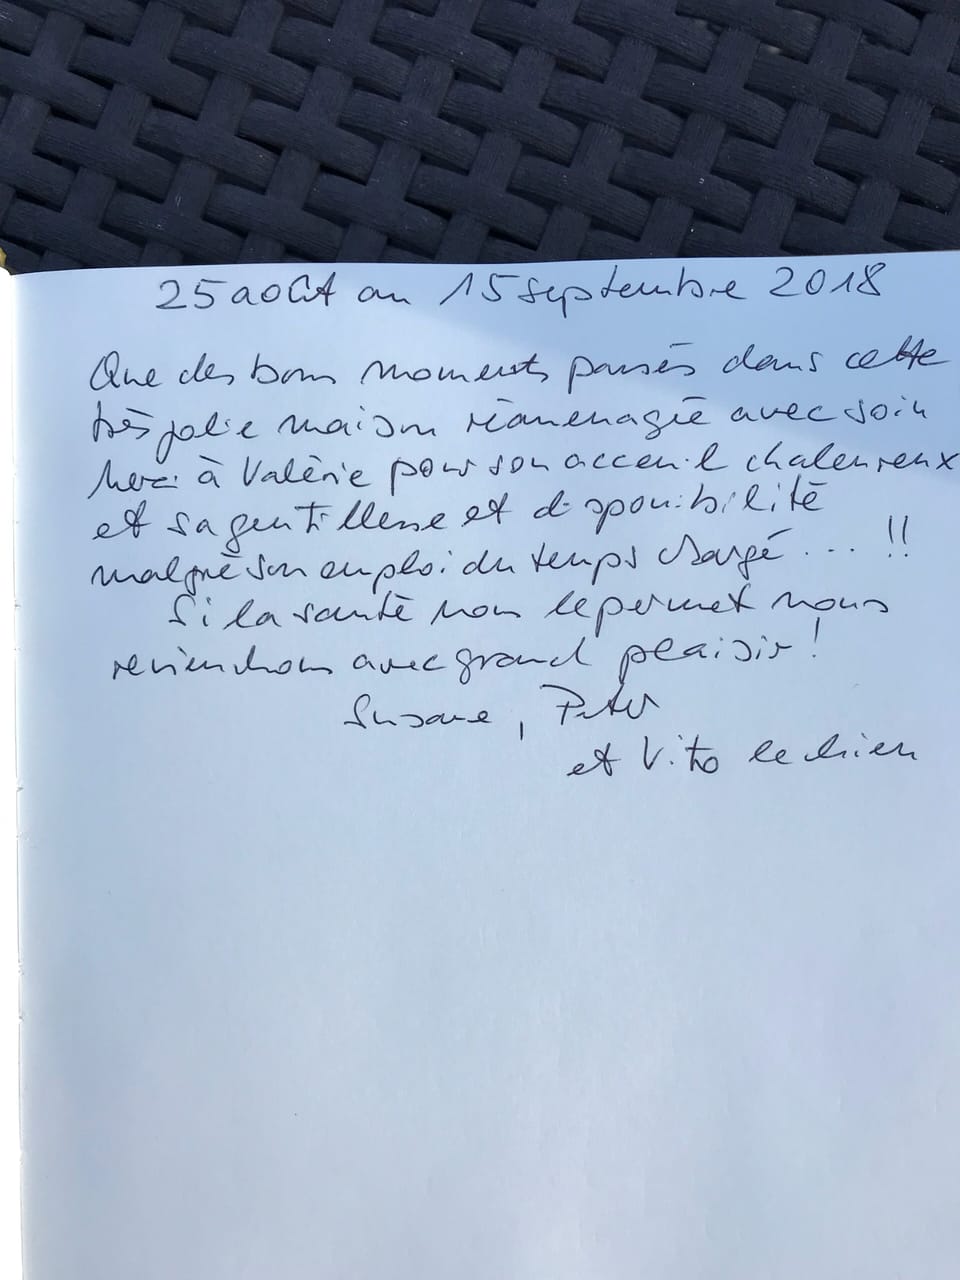 25 août au 15 septembre 2018
Que des bons moments passés dans cette
très jolie maison réaménagée avec soin
Merci à Valérie pour son acceuil chaleureux
et sa gentillesse et disponibilité
malgré son emploi du temps chargé . . . !!
Si la santé nous le permet nous
reviendrons avec grand plaisir !
Susane, Peter
et Vito le chien